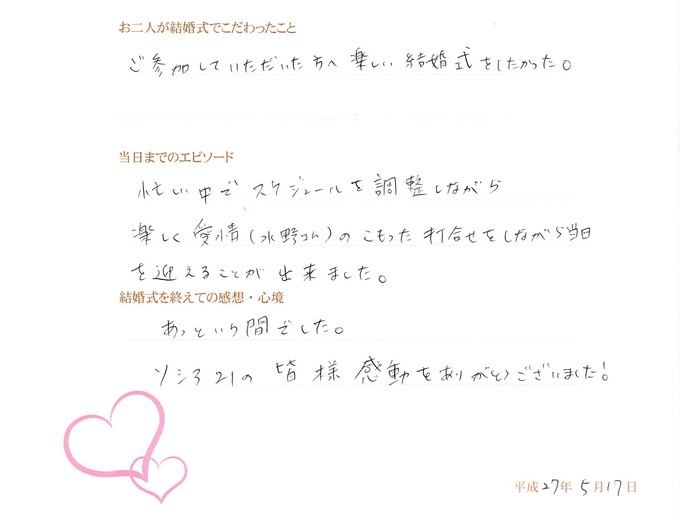 お二人が結婚式でこだわったこと
ご参加していただいた方へ楽しい結婚式をしたかった。
当日までのエピソード
忙しい中でスケジュールを調整しながら
楽しく愛情(水野さん)のこもった打合せをしながら当日
を迎えることが出来ました。
結婚式を終えての感想・心境
あっという間でした。
ソシア21の皆様感動をありがとうございました!
平成27年5月17日